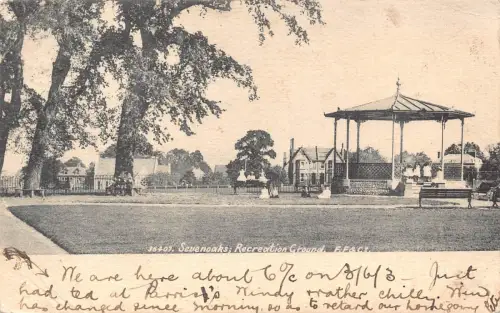 26407. Sevenoaks; Recreation Ground. F.F.& Co.
We are here about 6 7c on 3/6/3 - Just
had tea at Parriss's Windy rather chilly. Wind
has changed since morning, so as to retard our homegoing